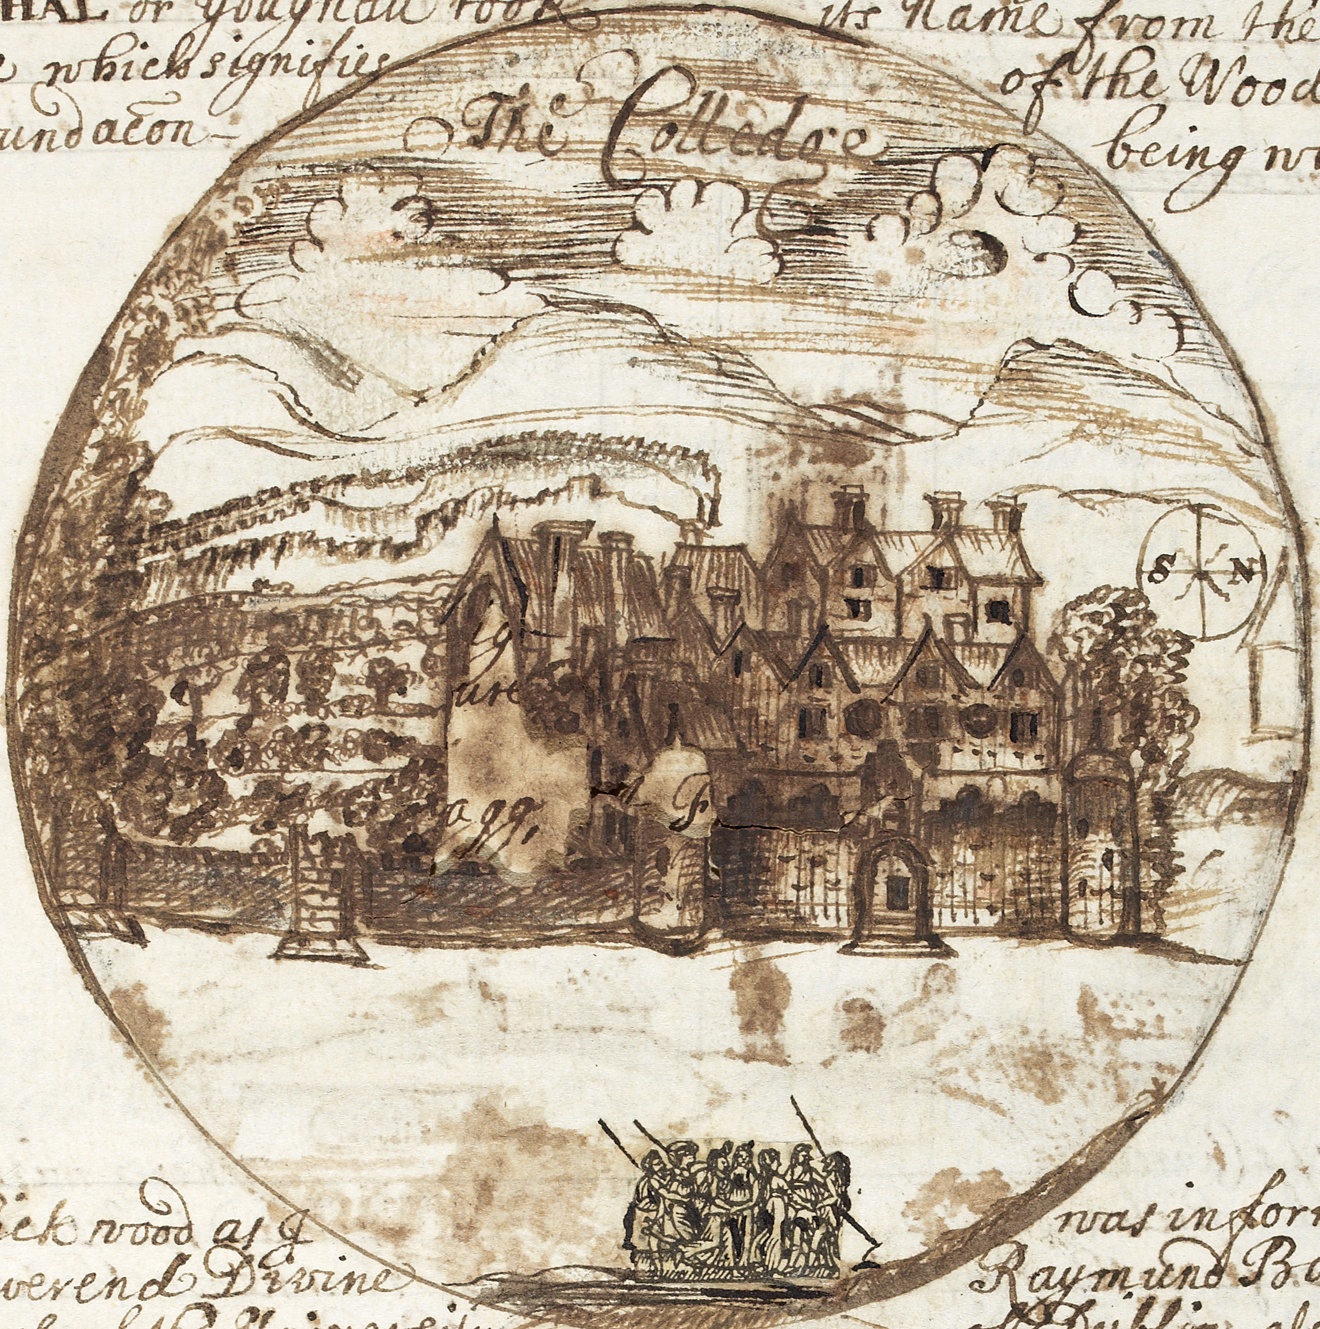 HAL or Youghall took its Name from the
which signifies of the Wood
undacõn being
The Colledge
S N
ig
ure
agg,
F
ick wood as I was infor
verend Divine Raymund